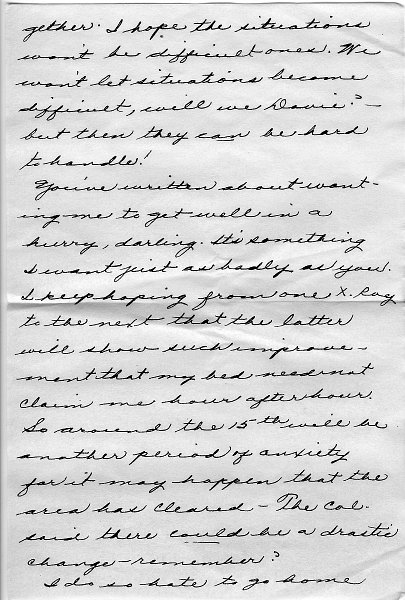 gether. I hope the situations
won't be difficult ones. We
won't let situations become
difficult, will we Davie? -
but then they can be hard
to handle!
You've written about want-
ing me to get well in a
hurry, darling. It's something
I want just as badly as you.
I keep hoping from one X-Ray
to the next that the latter
will show such improve-
ment that my bed need not
claim me hour after hour.
So around the 15th will be
another period of anxiety
for it may happen that the
area has cleared - The Col.
said there could be a drastic
change - remember?
I do so hate to go home